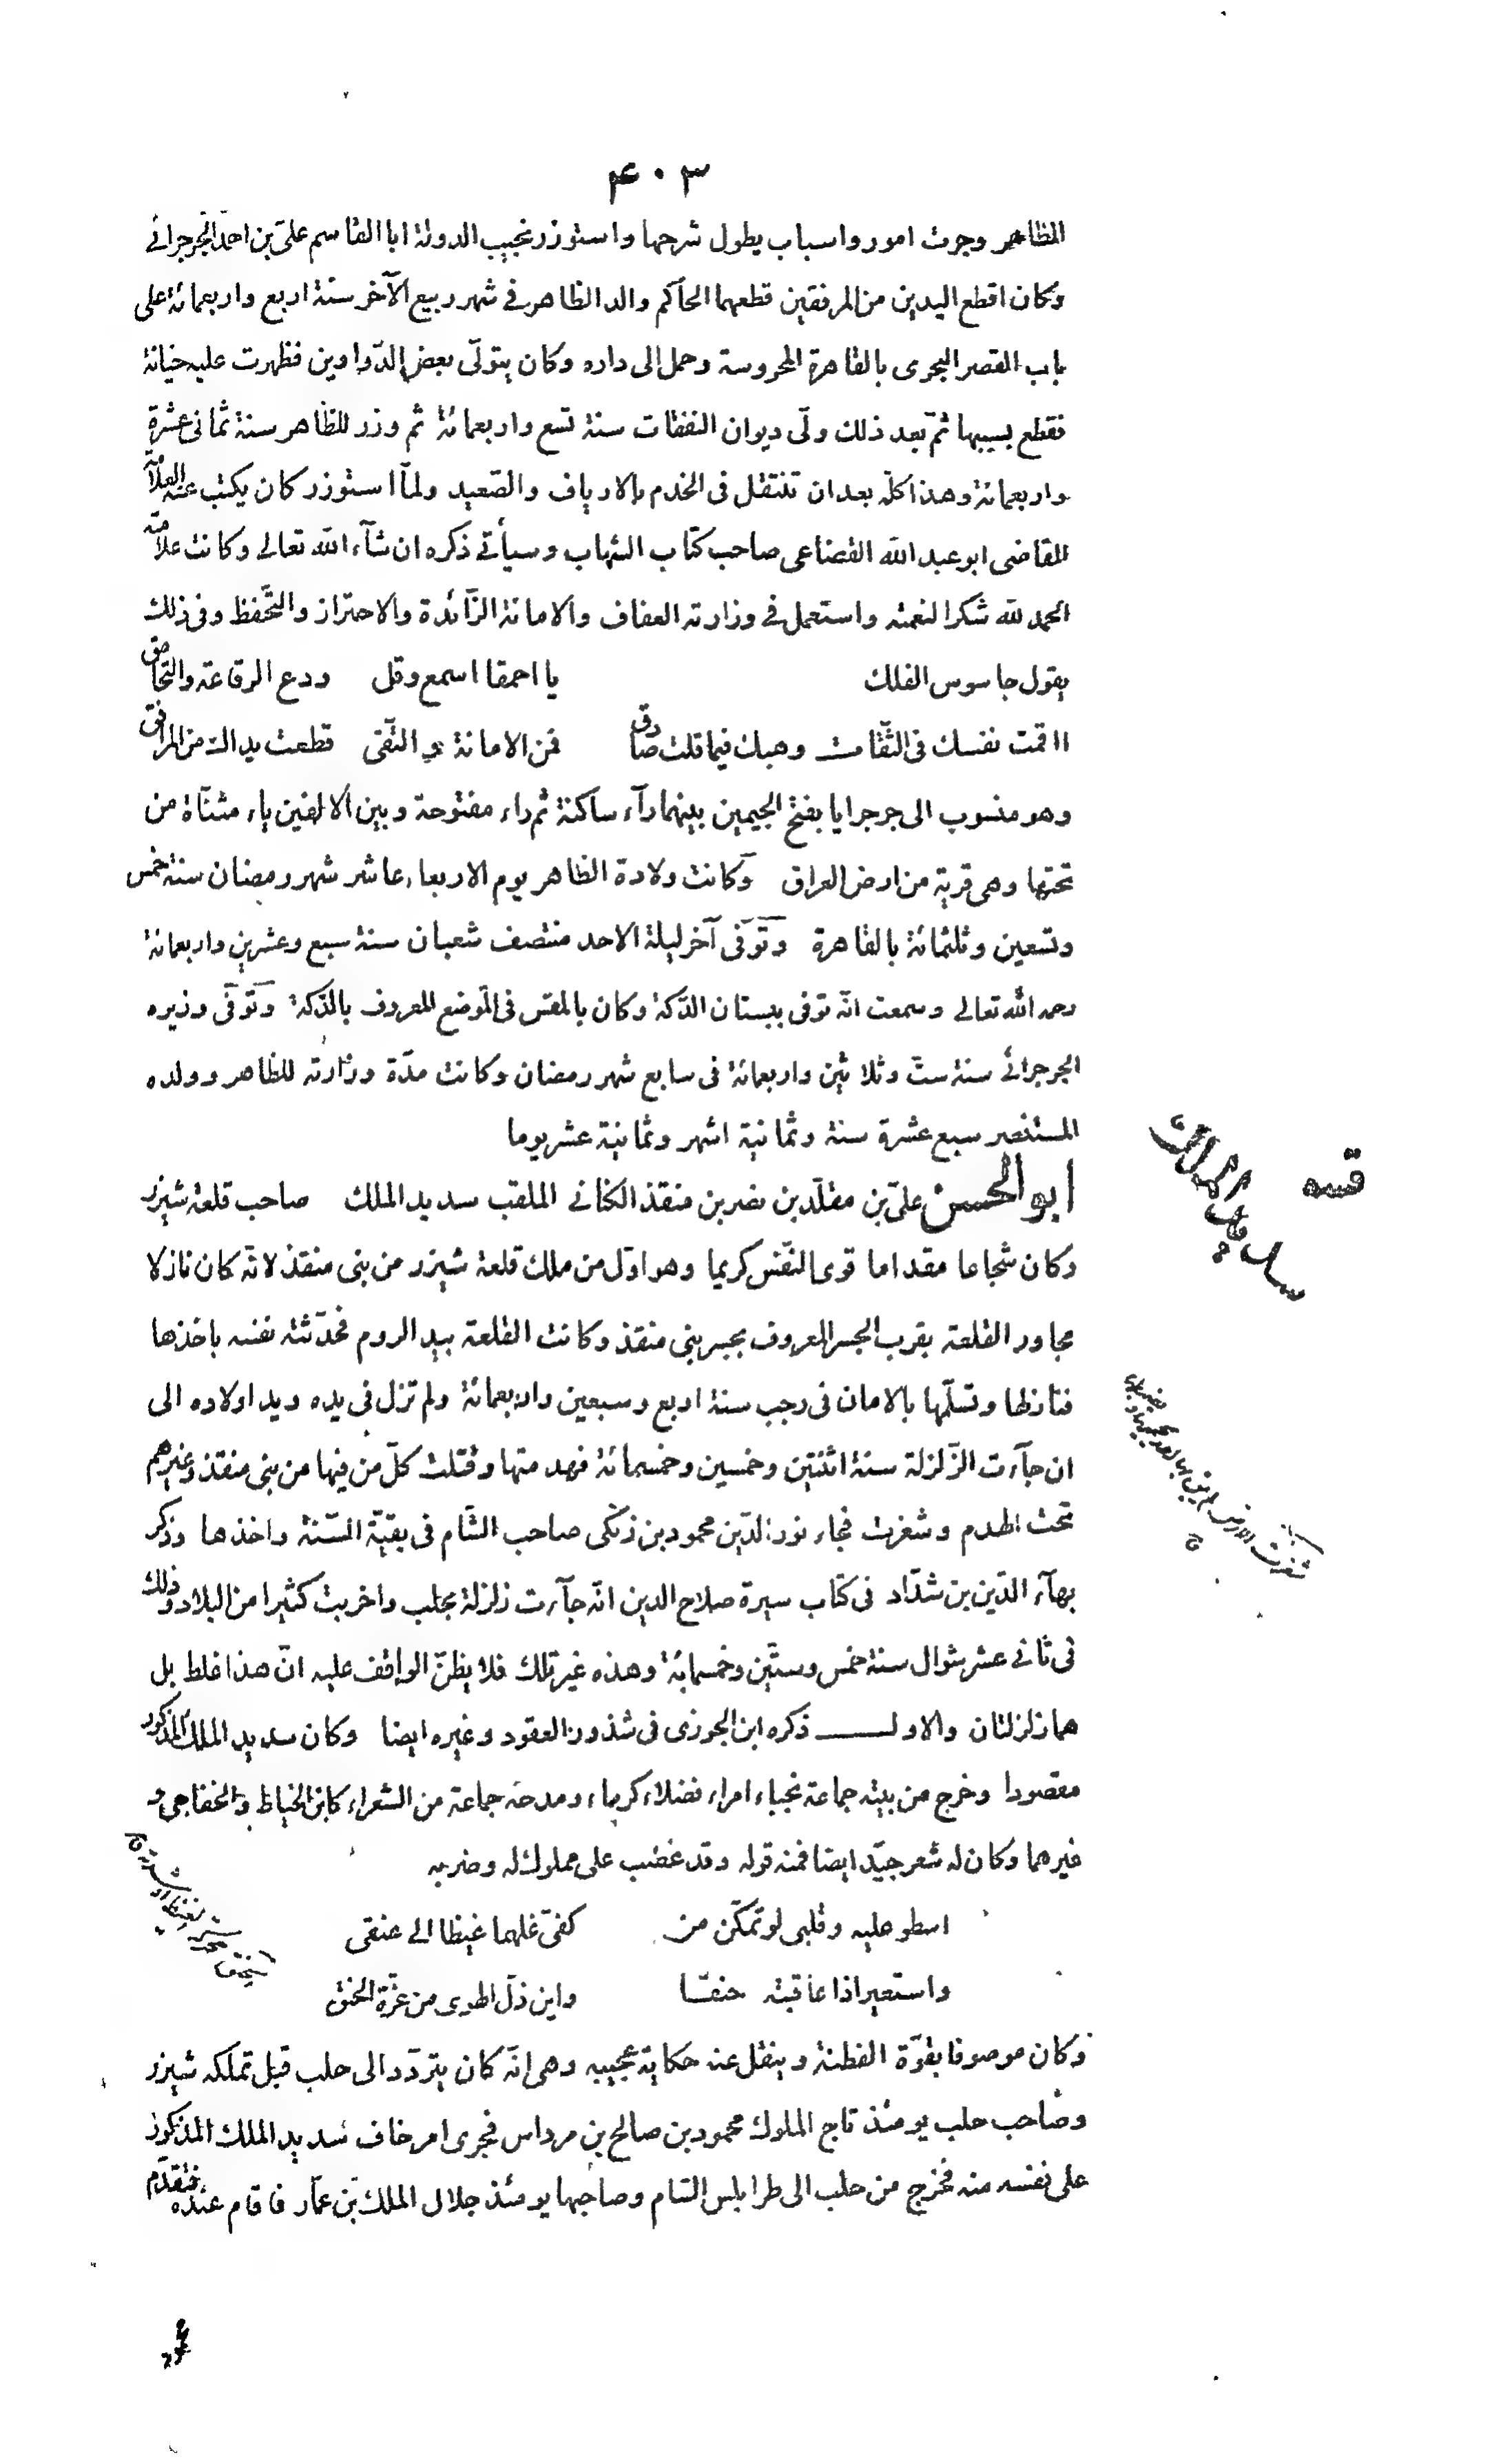 ۴۰۳
الظاهر وجرت امور واسباب يطول شرحها واستوزر نجيب الدولة ابا القاسم علىّ بن احمد الجرجرائى
وكان اقطع اليدين من المرفقين قطعهما الحاكم والد الظاهر فى شهر ربيع الآخر سنة اربع واربعمائة على
باب القصر البحرى بالقاهرة المحروسة وحمل الى داره وكان يتولّى بعض الدّواوين فظهرت عليه خيانة
فقطع بسببها ثمّ بعد ذلك ولّى ديوان النفقات سنة تسع واربعمائة ثم وزر للظاهر سنة ثمانى عشرة
واربعمائة وهذا كلّه بعد ان تنتقل فى الخدم بالارياف والصّعيد ولمّا استوزر كان يكتب عنه العلامّة
القاضى ابو عبد الله القضاعى صاحب كتاب الشهاب وسيأتى ذكره ان شآء الله تعالى وكانت علامته
الحمد لله شكرا لنعمته واستعمل فى وزارته العفاف والامانة الزّائدة والاحتراز والتحّفظ وفى ذلك
يقول جاسوس الفلك يا احمقا اسمع وقل ودع الرقاعة والتحامق
ااقمت نفسك فى الثّقات وهبك فيما قلت صادق فمن الامانة و التّقى قطعت يداك من المرافق
وهو منسوب الى جرجرايا بفتح الجيمين بينهما رآء ساكنة ثم راء مفتوحة وبين الالفين ياء مثنّاة من
تحتها وهى قرية من ارض العراق وكانت ولادة الظاهر يوم الاربعاء عاشر شهر رمضان سنة خمس
وتسعين وثلثمائة بالقاهرة وتوّفى آخر ليلة الاحد منتصف شعبان سنة سبع وعشرين واربعمائة
رحمه الله تعالى وسمعت انّه توفى ببستان الدّكة وكان بالمقس فى الموضع المعروف بالدّكة وتوّفى وزيره
الجرجرائى سنة ستّ وثلاثين واربعمائة فى سابع شهر رمضان وكانت مدّة وزارته للظاهر وولده
المستنصر سبع عشرة سنة وثمانية اشهر وثمانية عشر يوما
ابو الحسن علىّ بن مقلّد بن نصر بن منقذ الكنانى الملقب سديد الملك صاحب قلعة شيزر
وكان شجاعا مقداما قوى النّفس كريما وهو اوّل من ملك قلعة شيزر من بنى منقذ لانّه كان نازلا
مجاور القلعة بقرب الجسر المعروف بجسر بنى منقذ وكانت القلعة بيد الروم فحدّثته نفسه باخذها
فنازلها وتسلّمها بالامان فى رجب سنة اربع وسبعين واربعمائة ولم تزل فى يده ويد اولاده الى
ان جآءت الزّلزلة سنة اثنتين وخمسين وخمسمائة فهدمتها وقتلت كلّ من فيها من بنى منقذ وغيرهم
تحت الهدم وشغرت فجاء نور الدّين محمود بن زنكى صاحب الشّام فى بقيّة السّنة واخذها وذكر
بهآء الدّين بن شدّاد فى كتاب سيرة صلاح الدين انّه جآءت زلزلة بحلب واخربت كثيرا من البلاد وذلك
فى ثانى عشر شوال سنة خمس وستّين وخمسمائة وهذه غير تلك فلا يظنّ الواقف عليه انّ هذا غلط بل
هما زلزلتان والاولـــــ ذكره ابن الجوزى فى شذور العقود وغيره ايضا وكان سديد الملك المذكور
مقصودا وخرج من بيته جماعة نجباء امراء فضلاء كرماء ومدحه جماعة من الشعراء كابن الخياط والخفاجى و
غيرهما وكان له شعر جيّد ايضا فمنه قوله وقد غضب على مملوك له وضربه
اسطو عليه وقلبى لو تمكّن من كفىّ غلهما غيظا الى عنقى
واستعير اذا عاقبته حنقـا واين ذلّ الهوى من عزّة الحنق
وكان موصوفا بقوّة الفطنة وينقل عنه حكاية عجيبه وهى انّه كان يتردّد الى حلب قبل تملكه شيزر
وصاحب حلب يومئذ تاج الملوك محمود بن صالح بن مرداس فجرى امر خاف سديد الملك المذكور
على نفسه منه فخرج من حلب الى طرابلس الشام وصاحبها يومئذ جلال الملك بن عمّار فاقام عنده فتقدّم
قصه
سديد الملك